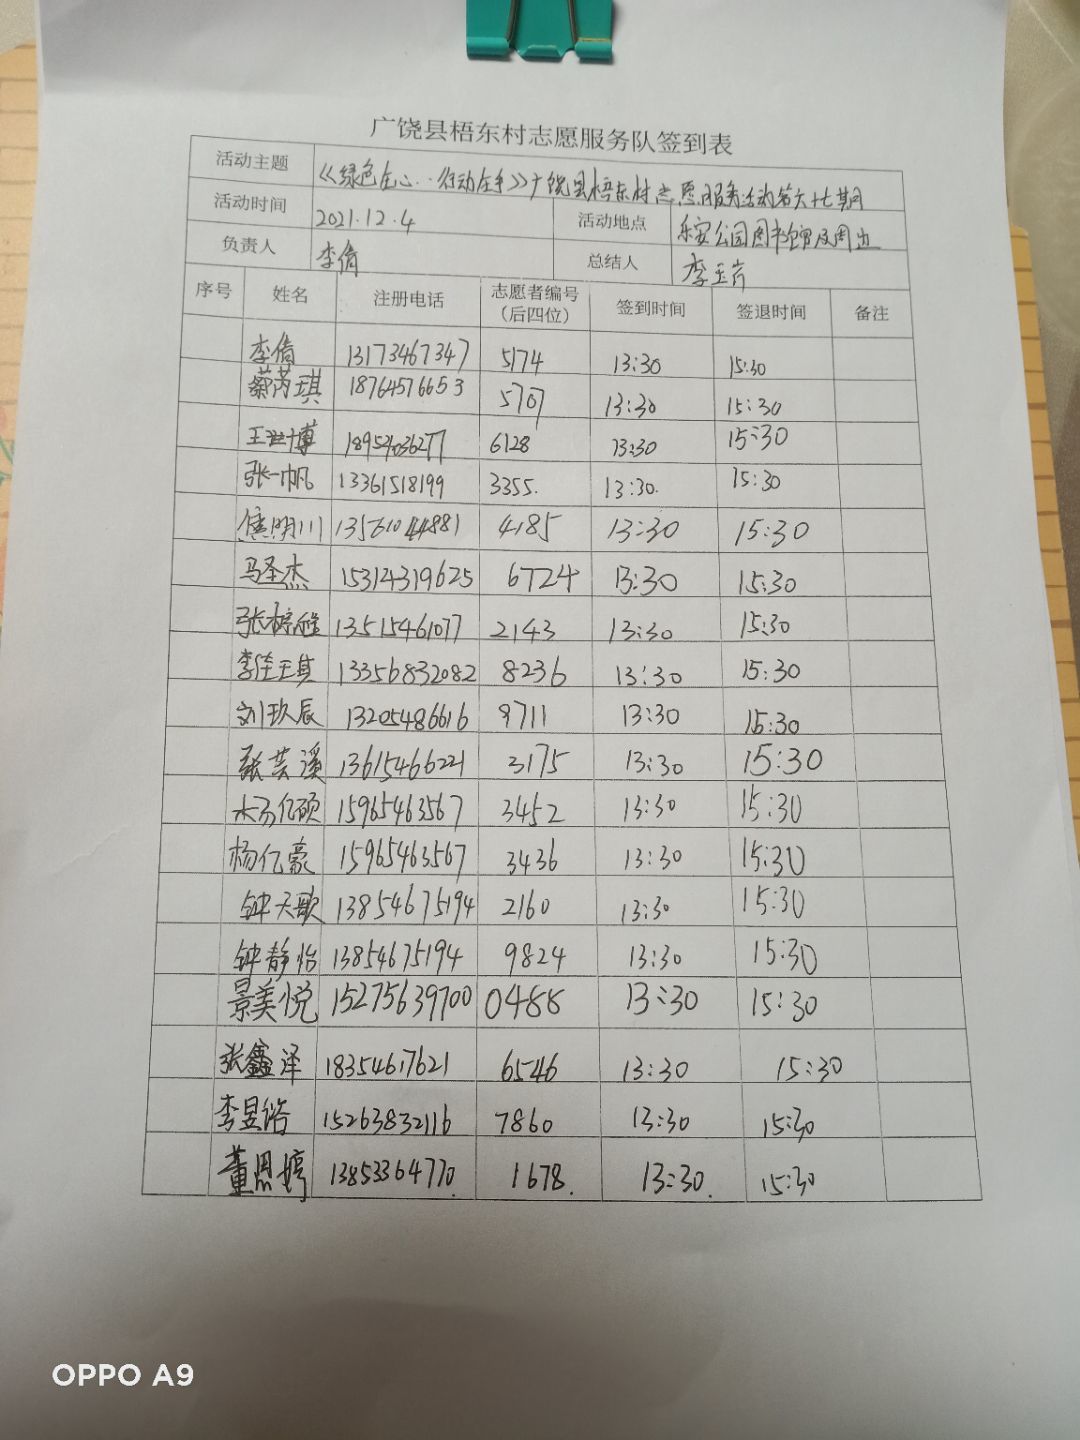 广饶县梧东村志愿服务队签到表
活动主题 《绿色在心··行动在手》广饶县梧东村志愿服务活动第六十七期
活动时间 2021.12.4 活动地点 乐安公园图书馆及周边
负责人 李倩 总结人 李玉芹
序号 姓名 注册电话 志愿者编号（后四位） 签到时间 签退时间 备注
李倩 13173467347 5174 13:30 15:30
蔡芮琪 18764576653 5707 13:30 15:30
王世博 18954036277 6128 13:30 15:30
张一帆 13361518199 3355. 13:30. 15:30
明川 13561044881 4185 13:30 15:30
马圣杰 15314319625 6724 13:30 15:30
张梓 13515461077 2143 13:30 15:30
李佳琪 13356832082 8236 13:30 15:30
刘玖辰 13205486616 9711 13:30 15:30
张芸溪 13615466221 3175 13:30 15:30
杨亿硕 15965463567 3452 13:30 15:30
杨亿豪 15965463567 3436 13:30 15:30
钟天歌 13854675194 2160 13:30 15:30
钟静怡 13854675194 9824 13:30 15:30
景美悦 15275639700 0488 13:30 15:30
张鑫泽 18354617621 6546 13:30 15:30
李昱皓 15263832116 7860 13:30 15:30
董恩婷 13853364770. 1678. 13:30. 15:30
OPPO A9